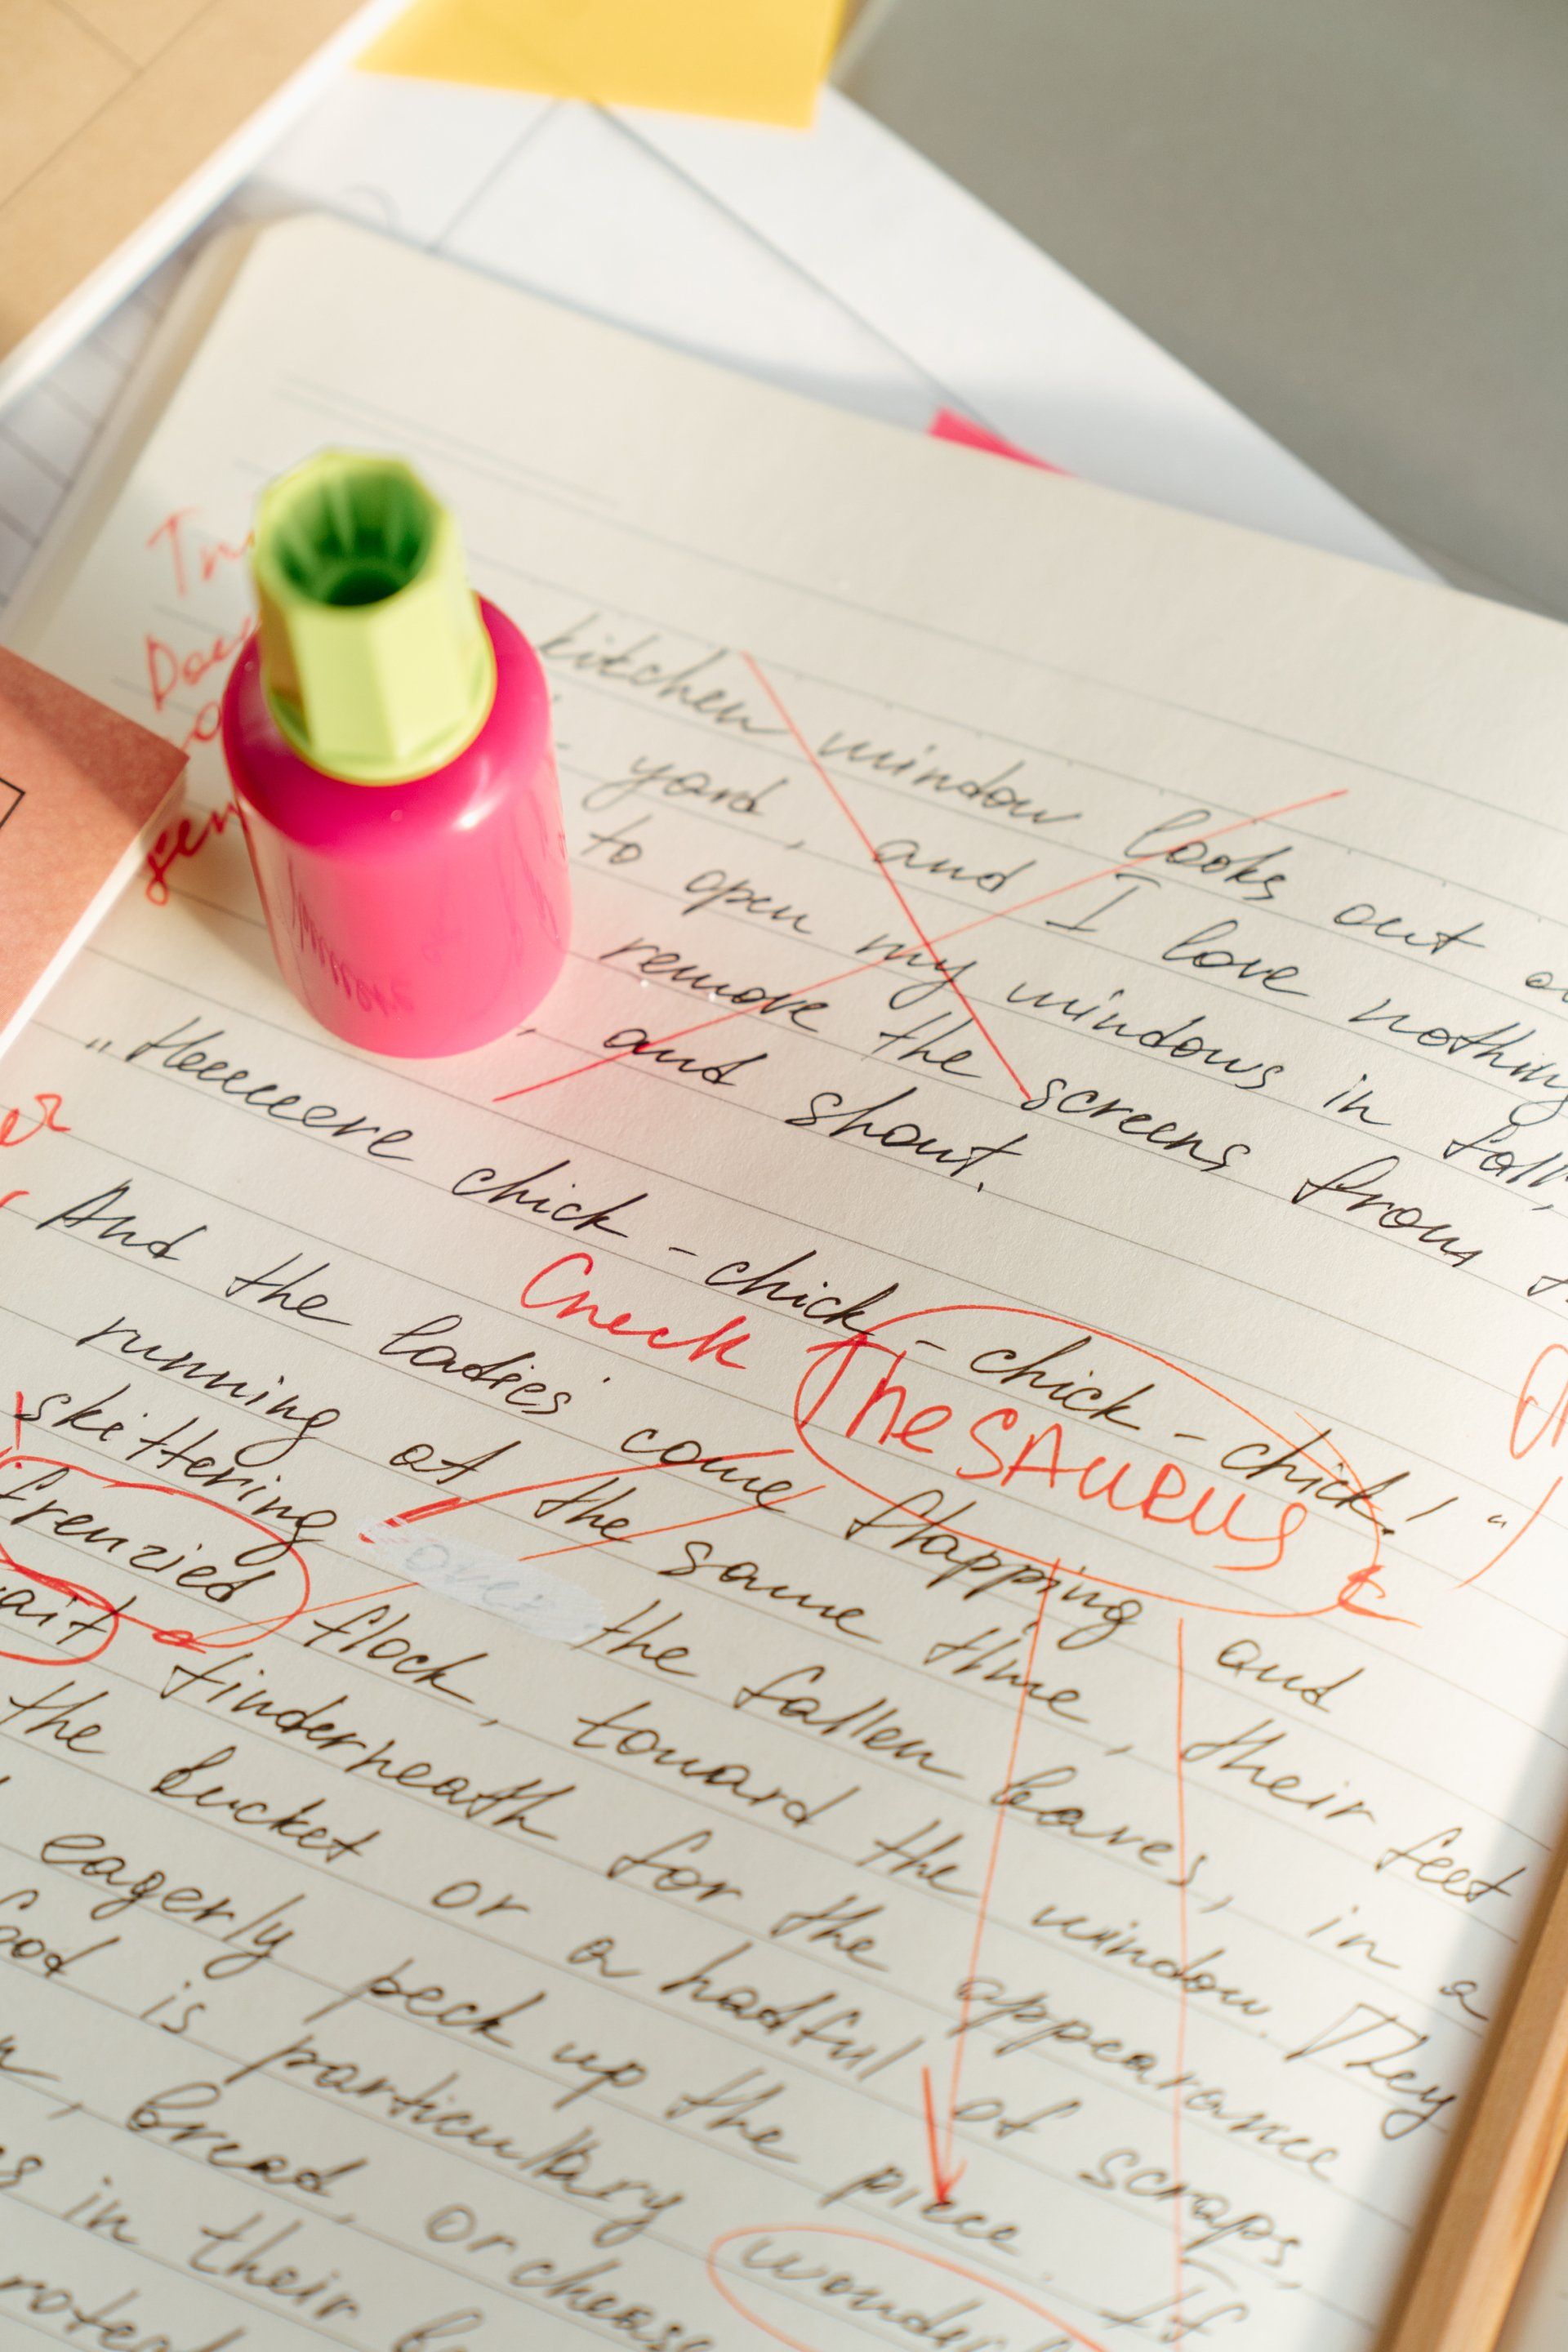 kitchen window looks out
yard, and I love nothing
to open my windows in fall,
remove the screens from
, and shout.
„Heeeeere chick-chick-chick-chick!“
Check TheSAURUS
And the ladies come flapping and
running at the same time, their feet
skittering over the fallen leaves, in a
frenzied flock, toward the window. They
ait tinderheath for the appearance
the bucket or a hatful of scraps,
eagerly peck up the piece. If
ood is particulary wonder
, bread, or cheese
s in their